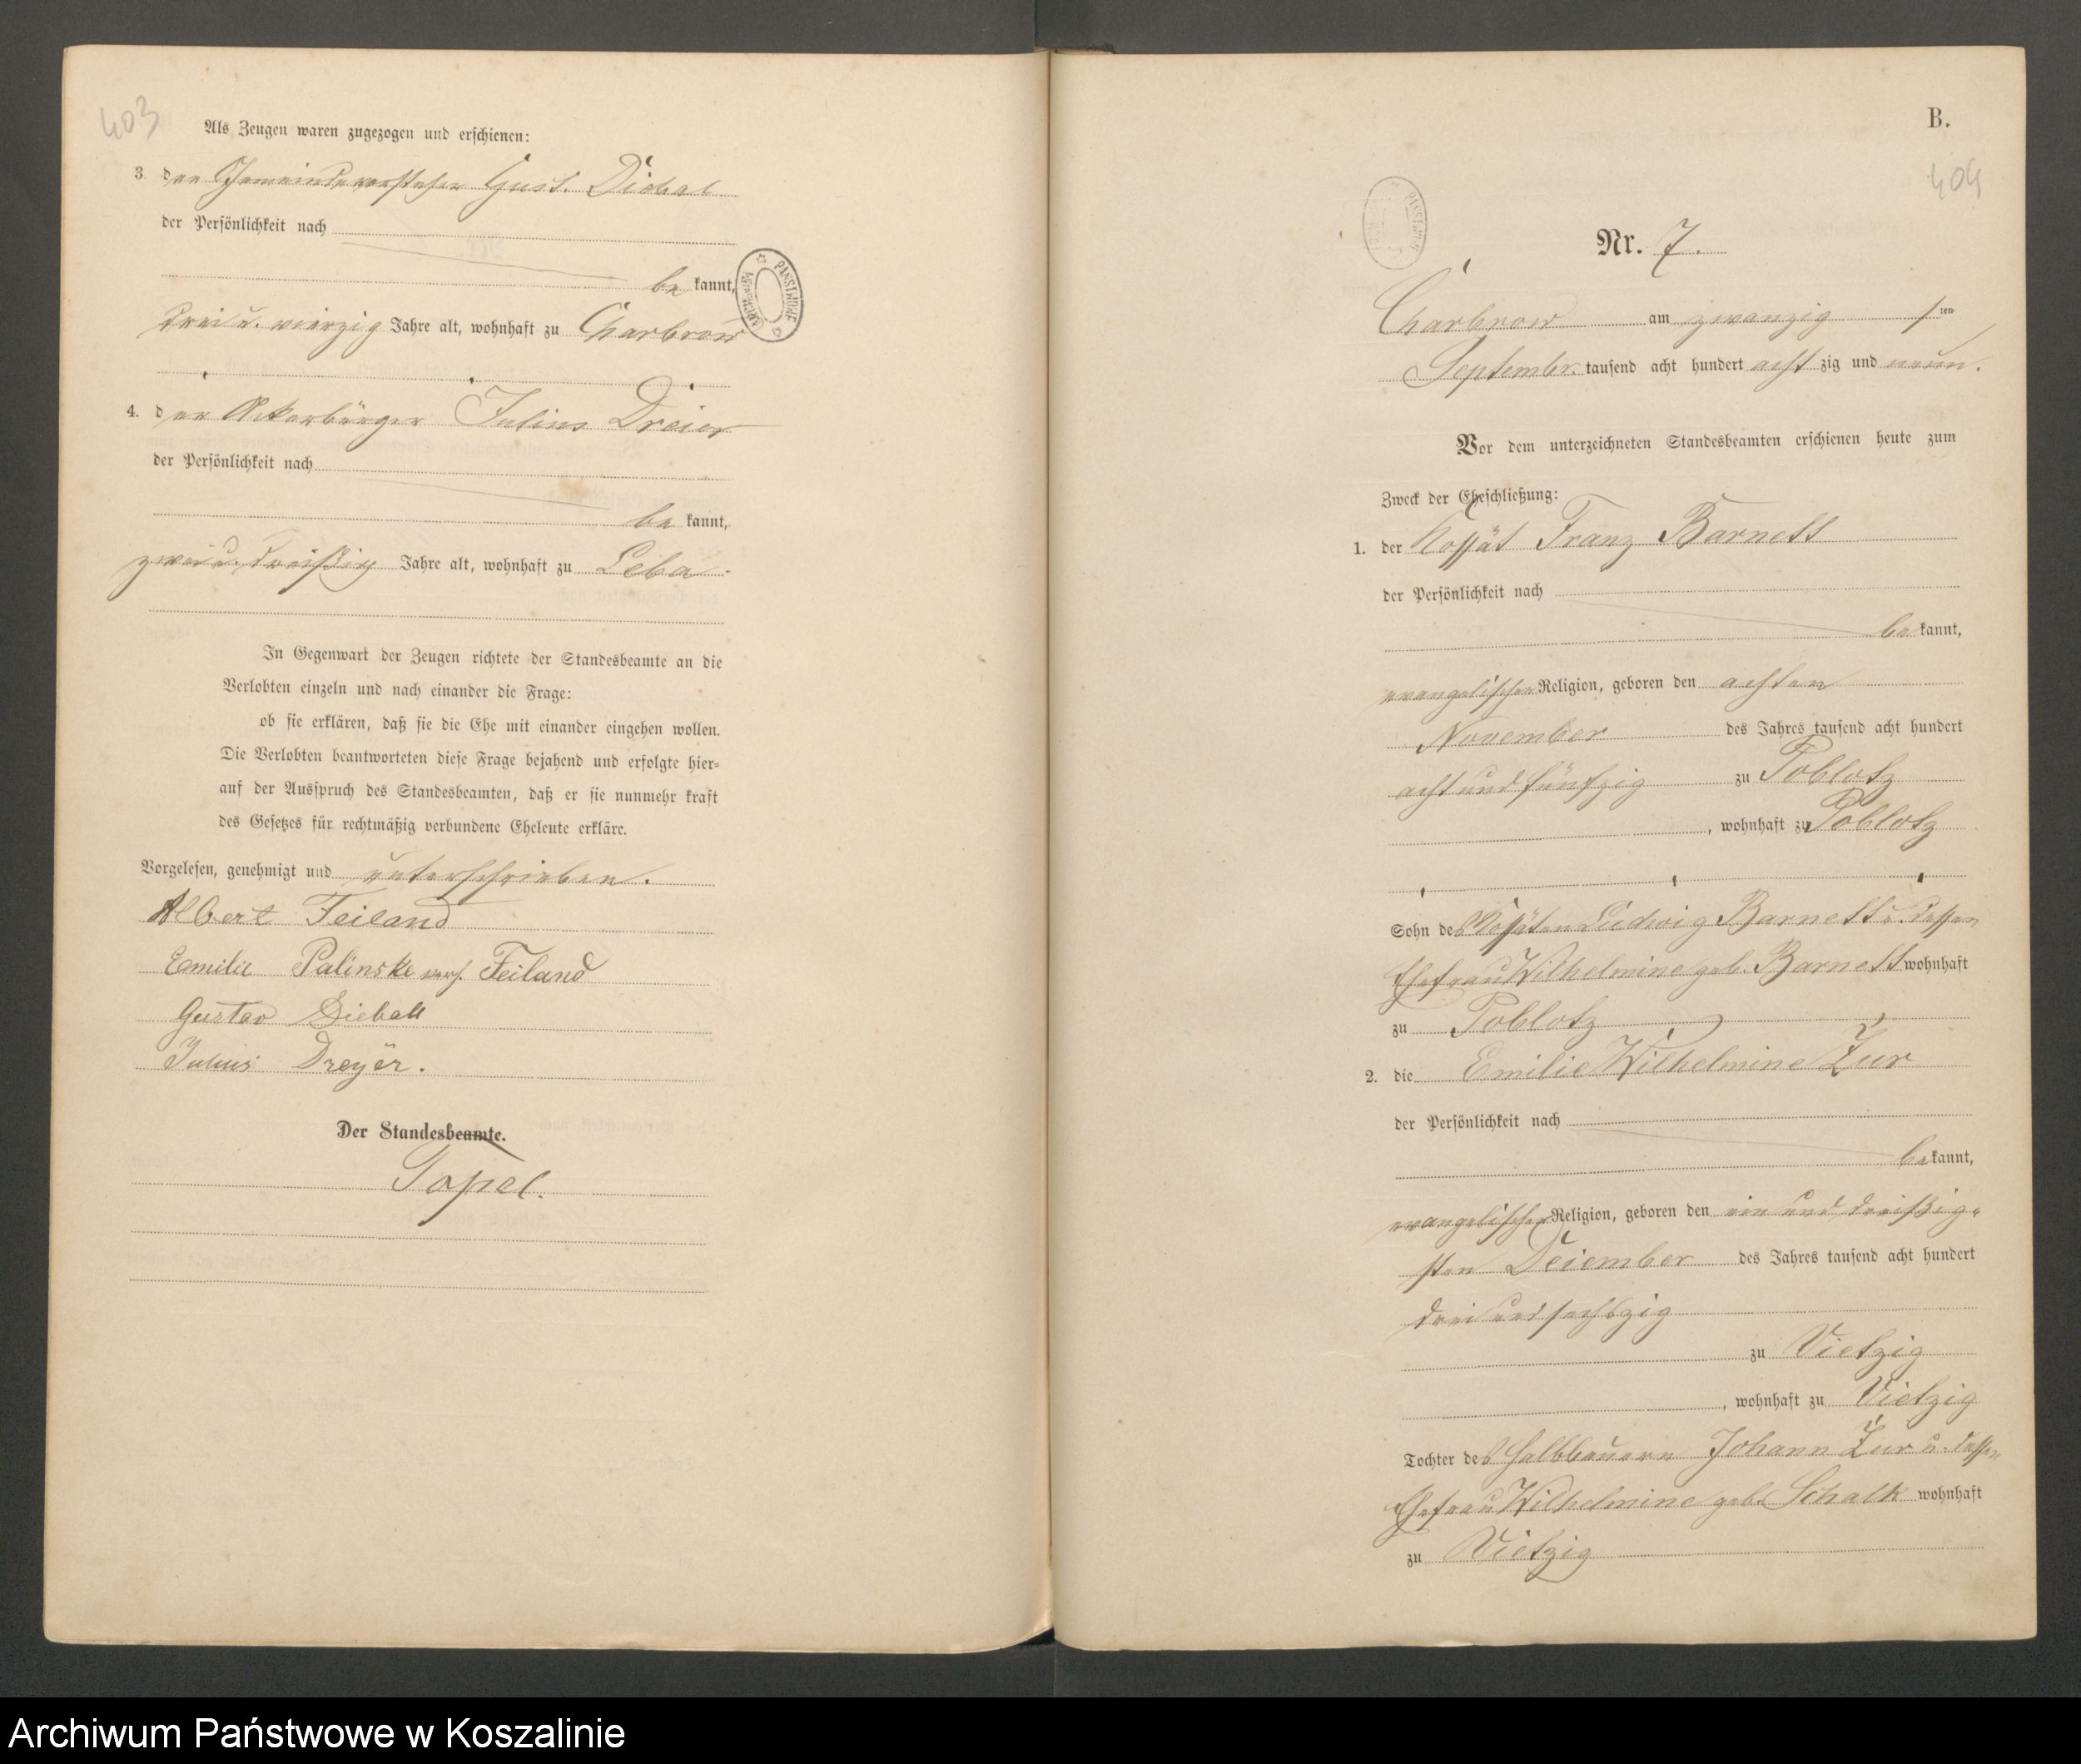 403
Als Zeugen waren zugezogen und erschienen:
3. der Gemeindevorsteher Gust. Diebal
der Persönlichkeit nach
be kannt,
drei u. vierzig Jahre alt, wohnhaft zu Charbrow
4. der Ackerbürger Julius Dreier
der Persönlichkeit nach
be kannt,
zwei u. dreißig Jahre alt, wohnhaft zu Leba.
In Gegenwart der Zeugen richtete der Standesbeamte an die
Verlobten einzeln und nach einander die Frage:
ob sie erklären, daß sie die Ehe mit einander eingehen wollen.
Die Verlobten beantworteten diese Frage bejahend und erfolgte hier-
auf der Ausspruch des Standesbeamten, daß er sie nunmehr kraft
des Gesetzes für rechtmäßig verbundene Eheleute erkläre.
Vorgelesen, genehmigt und unterschrieben.
Albert Feiland
Emilie Palinske verh. Feiland
Gustav Dieball
Julius Dreyer.
Der Standesbeamte.
Tapel.
B.
404
Nr. 7.
Charbrow am zwanzig sten
Septembr. tausend acht hundert acht zig und neun.
Vor dem unterzeichneten Standesbeamten erschienen heute zum
Zweck der Eheschließung:
1. der Kossät Franz Barnett
der Persönlichkeit nach
be kannt,
evangelischer Religion, geboren den achten
November des Jahres tausend acht hundert
acht und fünfzig zu Poblotz
, wohnhaft zu Poblotz
Sohn des Kossäten Ludwig Barnett u. dessen
Ehefrau Wilhelmine geb. Barnett wohnhaft
zu Poblotz
2. die Emilie Wilhelmine Zur
der Persönlichkeit nach
be kannt,
evangelischer Religion, geboren den ein und dreißig-
sten Dezember des Jahres tausend acht hundert
drei und sechszig
zu Vietzig
, wohnhaft zu Vietzig
Tochter des Halbbauern Johann Zur u. dessen
Ehefrau Wilhelmine geb. Schalk wohnhaft
zu Vietzig
Archiwum Państwowe w Koszalinie